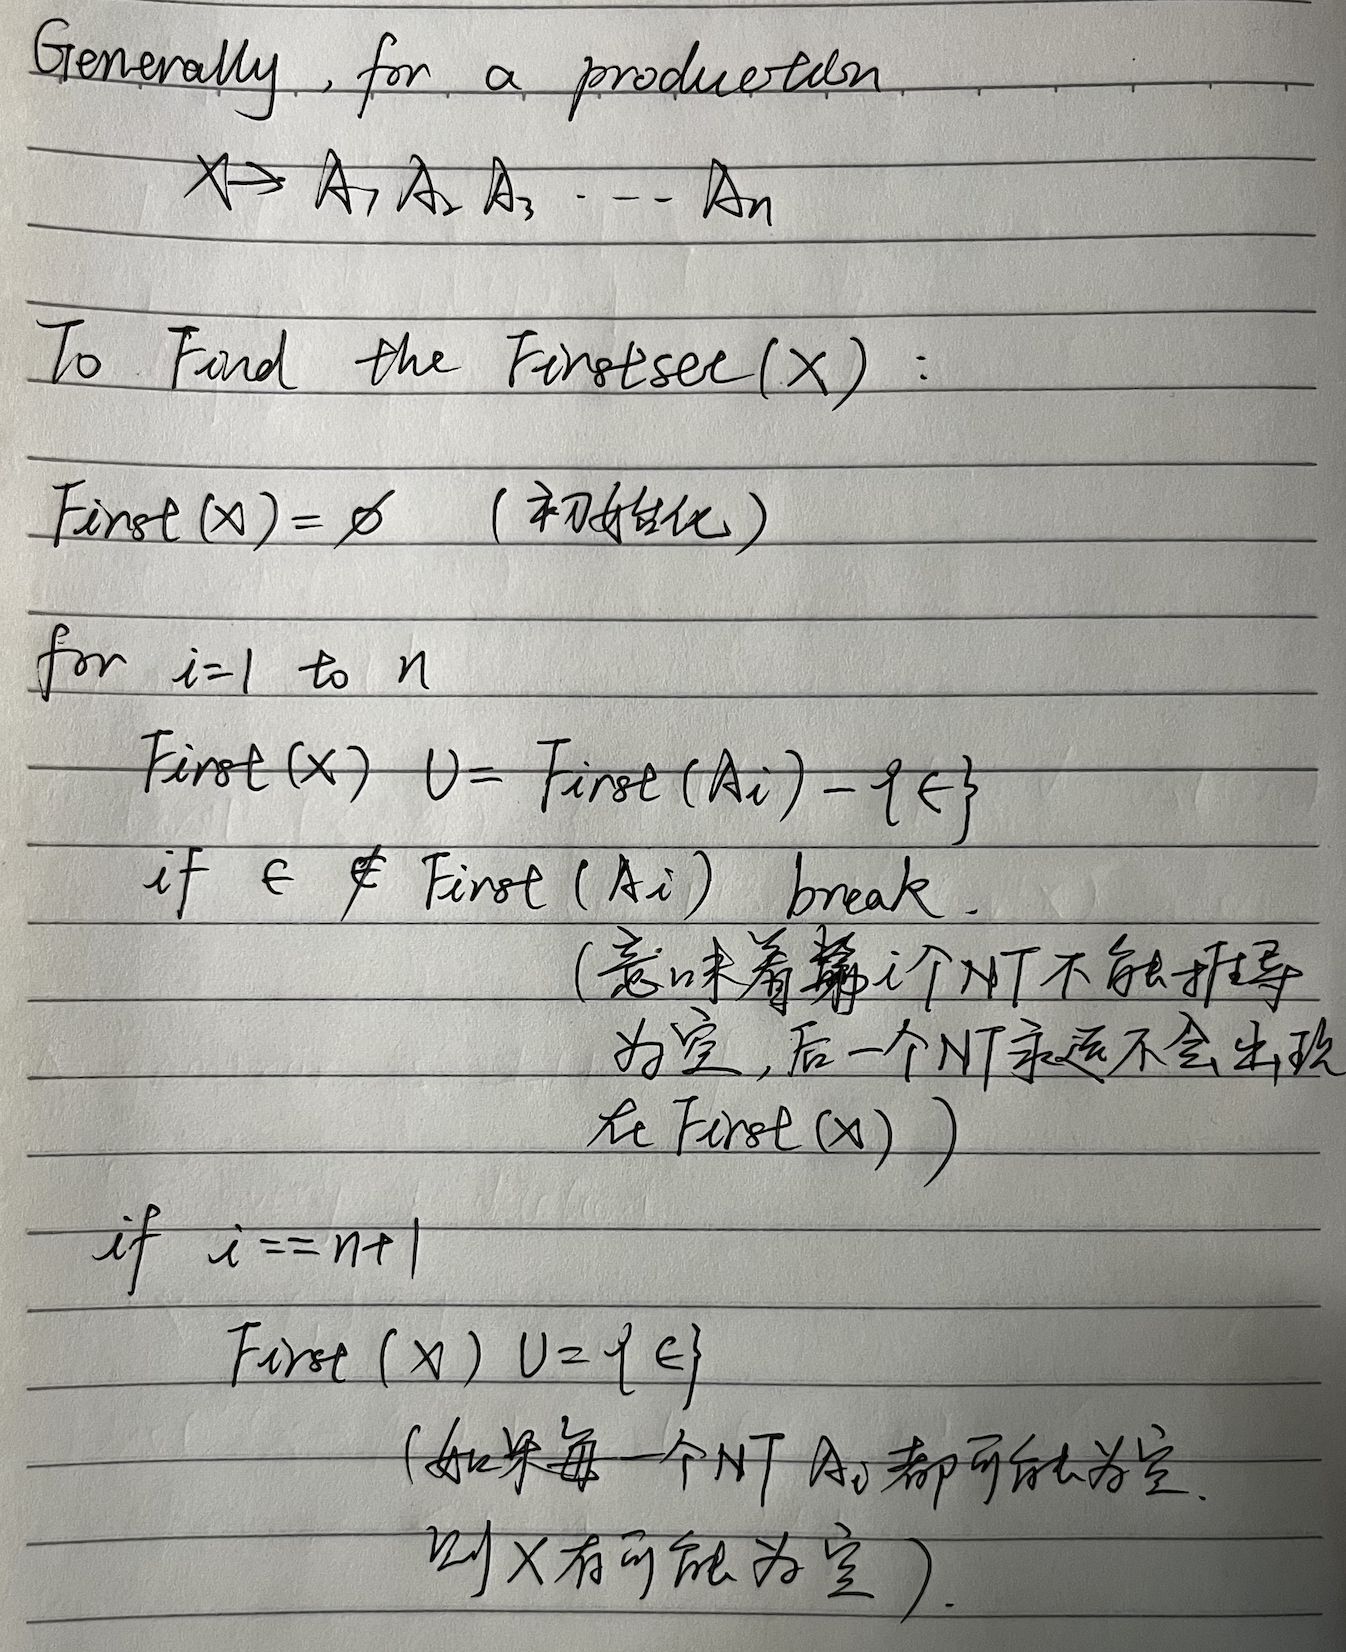 Generally, for a production
X → A₁ A₂ A₃ ---- Aₙ
To Find the Firstset(X):
First(X) = ∅ (初始化)
for i=1 to n
First(X) U= First(Ai) - {ϵ}
if ϵ ∉ First(Ai) break.
(意味着第i个NT不能推导
为空,后一个NT永远不会出现
在First(X))
if i==n+1
First(X) U= {ϵ}
(如果每一个NT Ai都可能为空.
则X有可能为空).